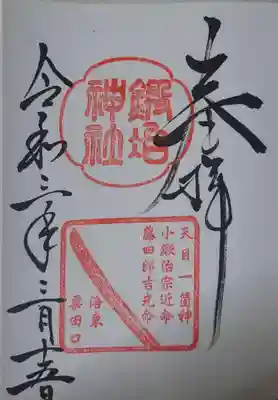 奉拝
鍛冶
神社
天目一箇神
小鍛治宗近命
藤四郎吉光命
洛東
粟田口
令和三年三月十五日